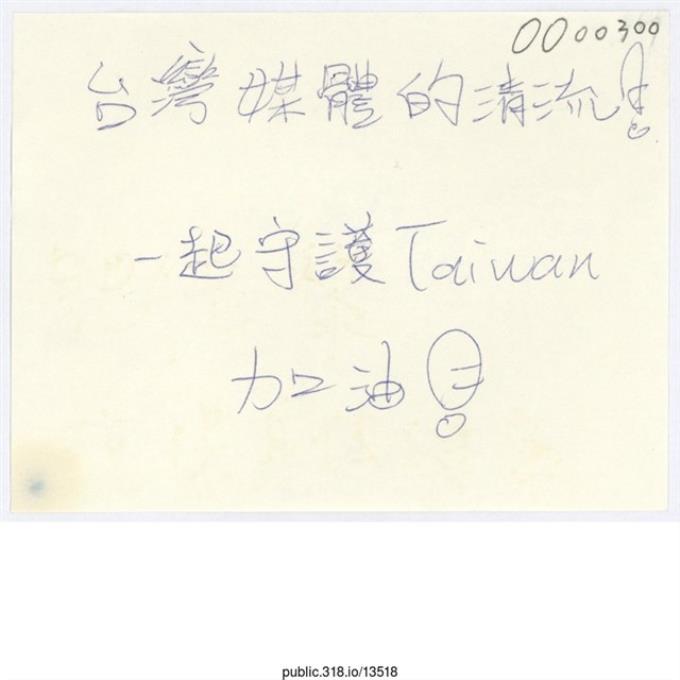 0000300
台灣媒體的清流!
一起守護Taiwan
加油!
public.318.io/13518